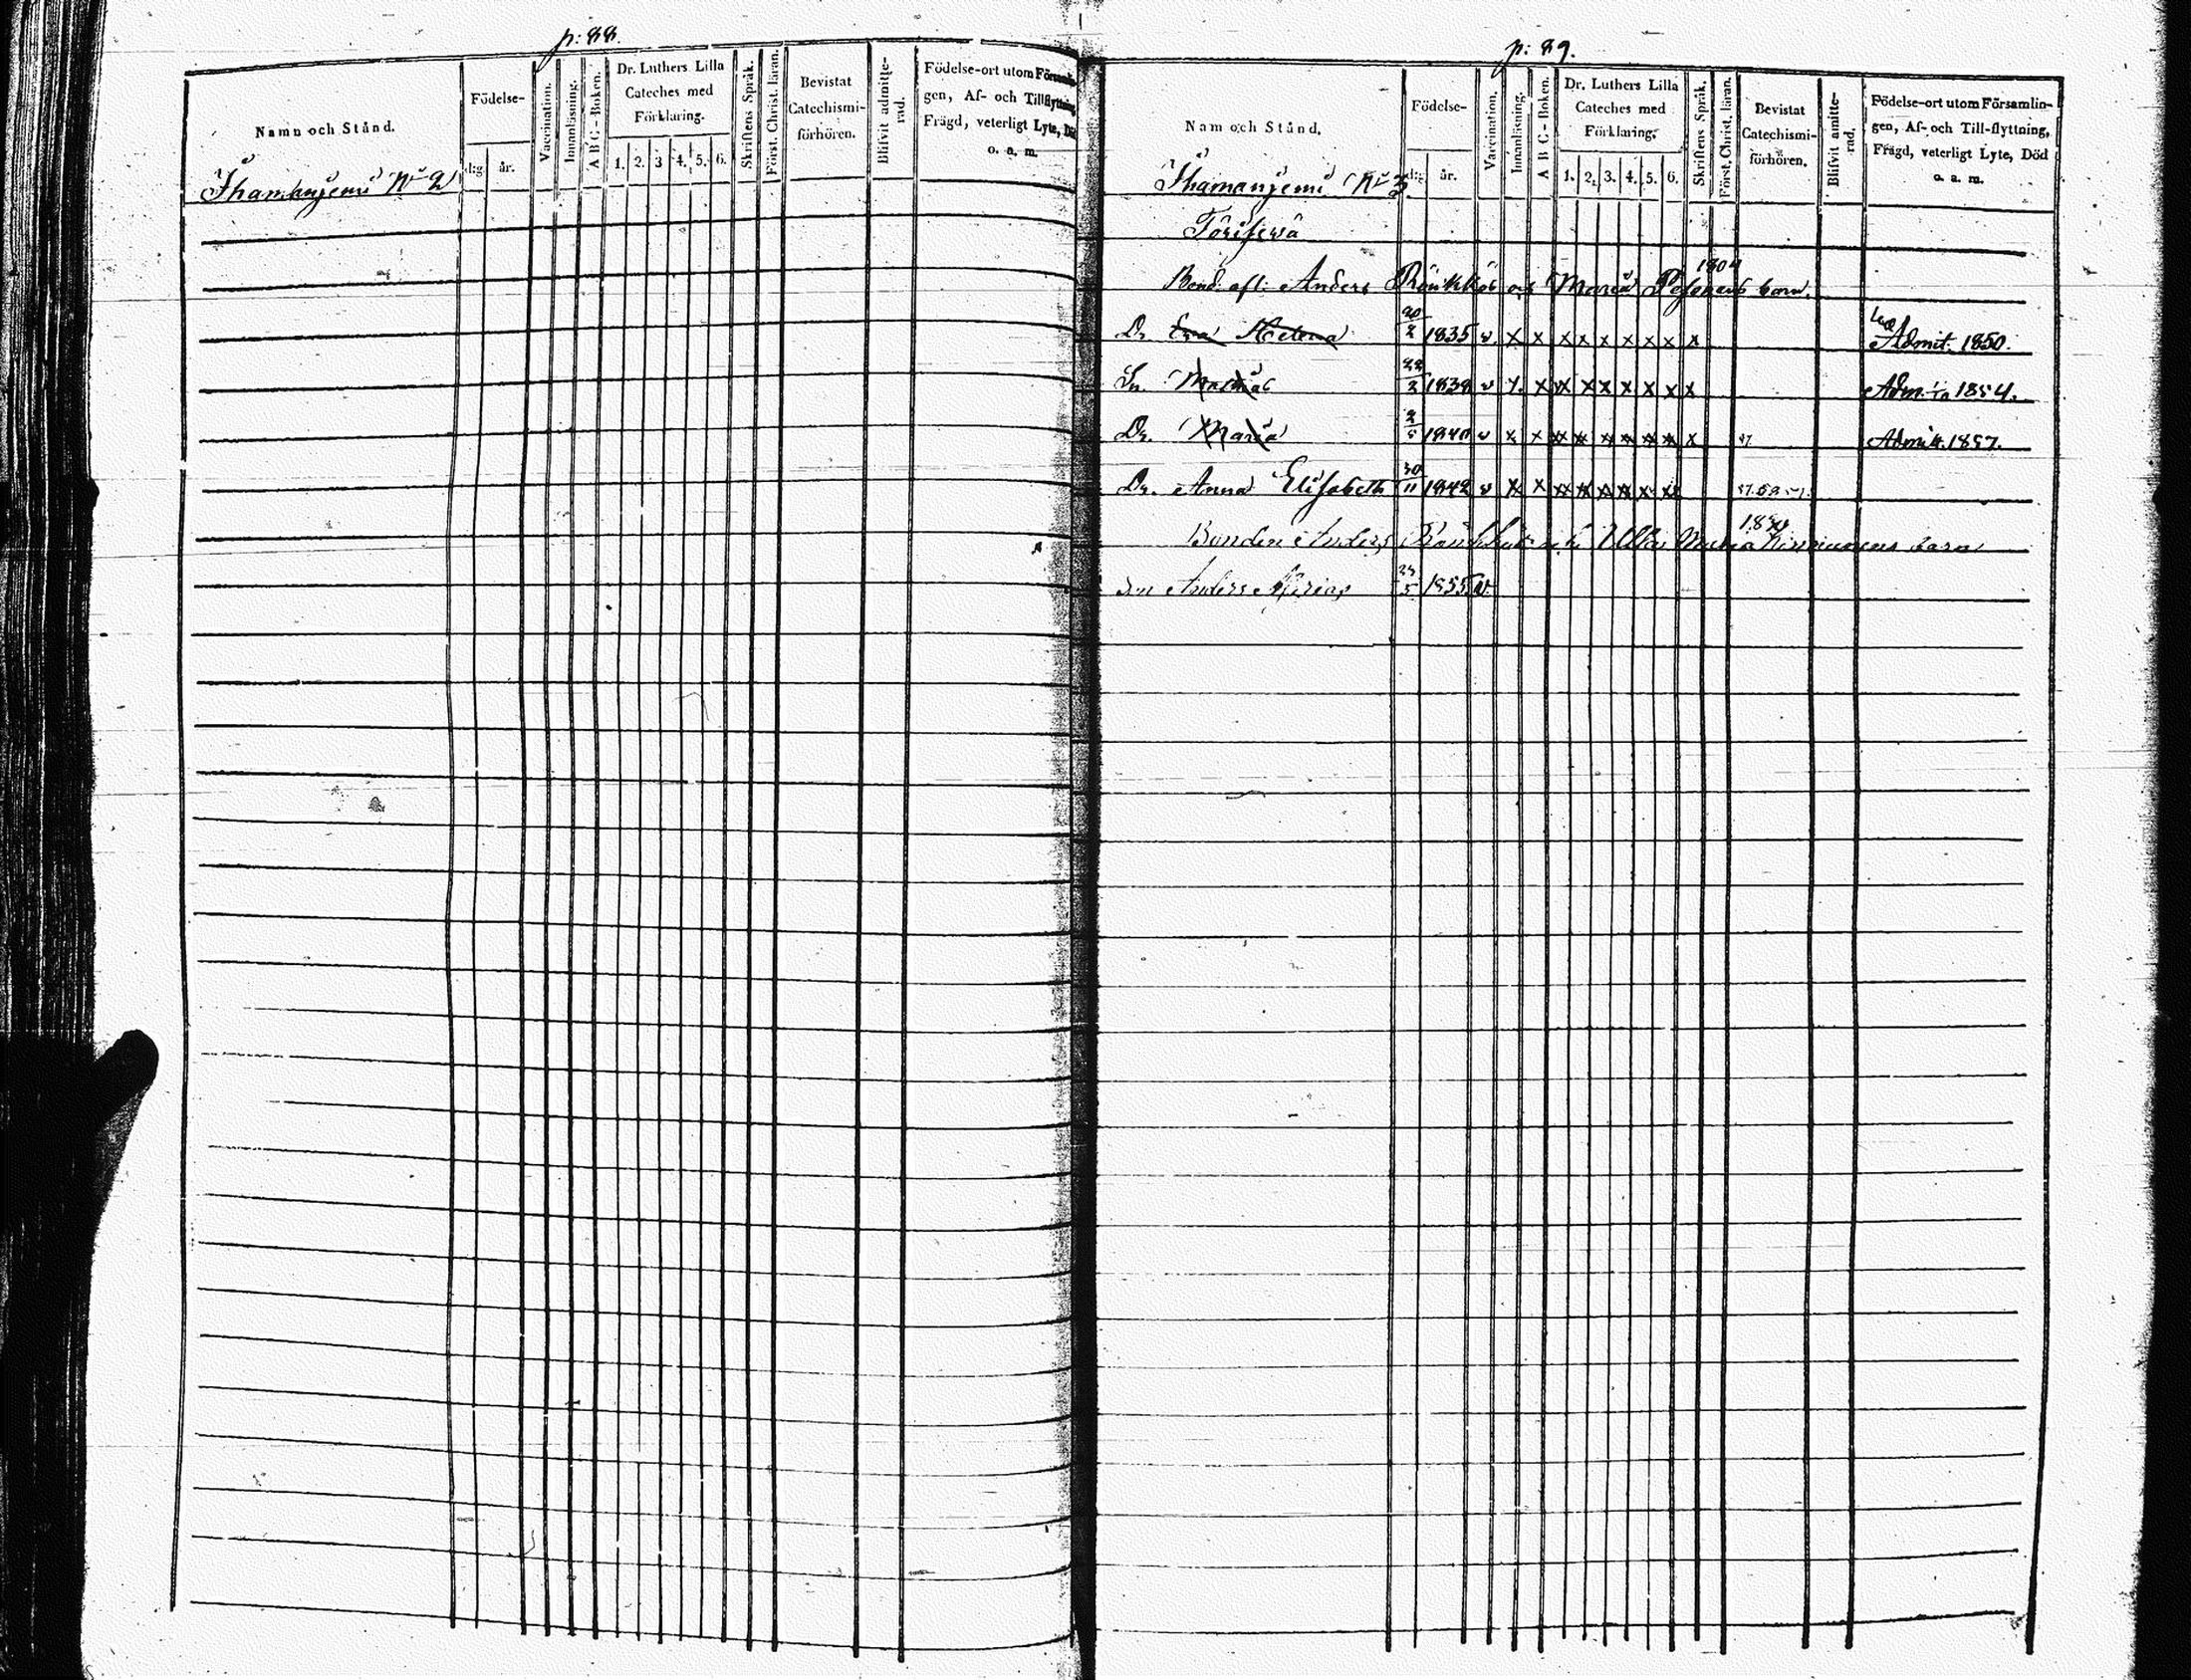 p: 88.
Namn och Stånd.
Födelse-
dag
år.
Vaccination.
Innanläsning.
A B C - Boken.
Dr. Luthers Lilla
Cateches med
Förklaring.
1. 2. 3 4. 5. 6.
Skriftens Språk.
Först. Christ. läran.
Bevistat
Catechismi-
förhören.
Blifvit admitte-
rad.
Födelse-ort utom Församlin-
gen, Af- och Tillflyttning,
Frägd, veterligt Lyte, Död
o. a. m.
Ihamaniemi No 2
p: 89.
Nam och Stånd.
Födelse-
dag
år.
Vaccination.
Innanläsning.
A B C - Boken.
Dr. Luthers Lilla
Cateches med
Förklaring.
1. 2. 3. 4. 5. 6.
Skriftens Språk.
Först. Christ. läran.
Bevistat
Catechismi-
förhören.
Blifvit amitte-
rad.
Födelse-ort utom Församlin-
gen, Af- och Till-flyttning,
Frägd, veterligt Lyte, Död
o. a. m.
Ihamaniemi No 3
Bond. afl. Anders och Maria barn.
Dr. Eva Helena 20/2 1835 v. x x x x x x x x x Admit. 1850.
Sn. Mathias 22/2 1838 v x x x x x x x x x Adm. 1854.
Dr. Maria 2/5 1840 v x x x x x x x x x 57 Admitt. 1857.
Dr. Anna Elisabeth 30/11 1842 v x x x x x x x x
Bonden Anders Ulla Maria barn
Son Anders 1855 v.